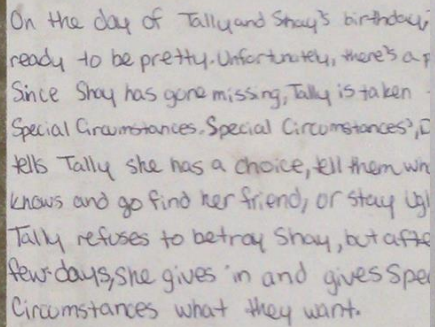 On the day of Tally and Shay's birthday,
ready to be pretty. Unfortunately, there's a
Since Shay has gone missing, Tally is taken
Special Circumstances. Special Circumstances',
tells Tally she has a choice, tell them
knows and go find her friend, or stay
Tally refuses to betray Shay, but
few days, she gives in and gives
Circumstances what they want.